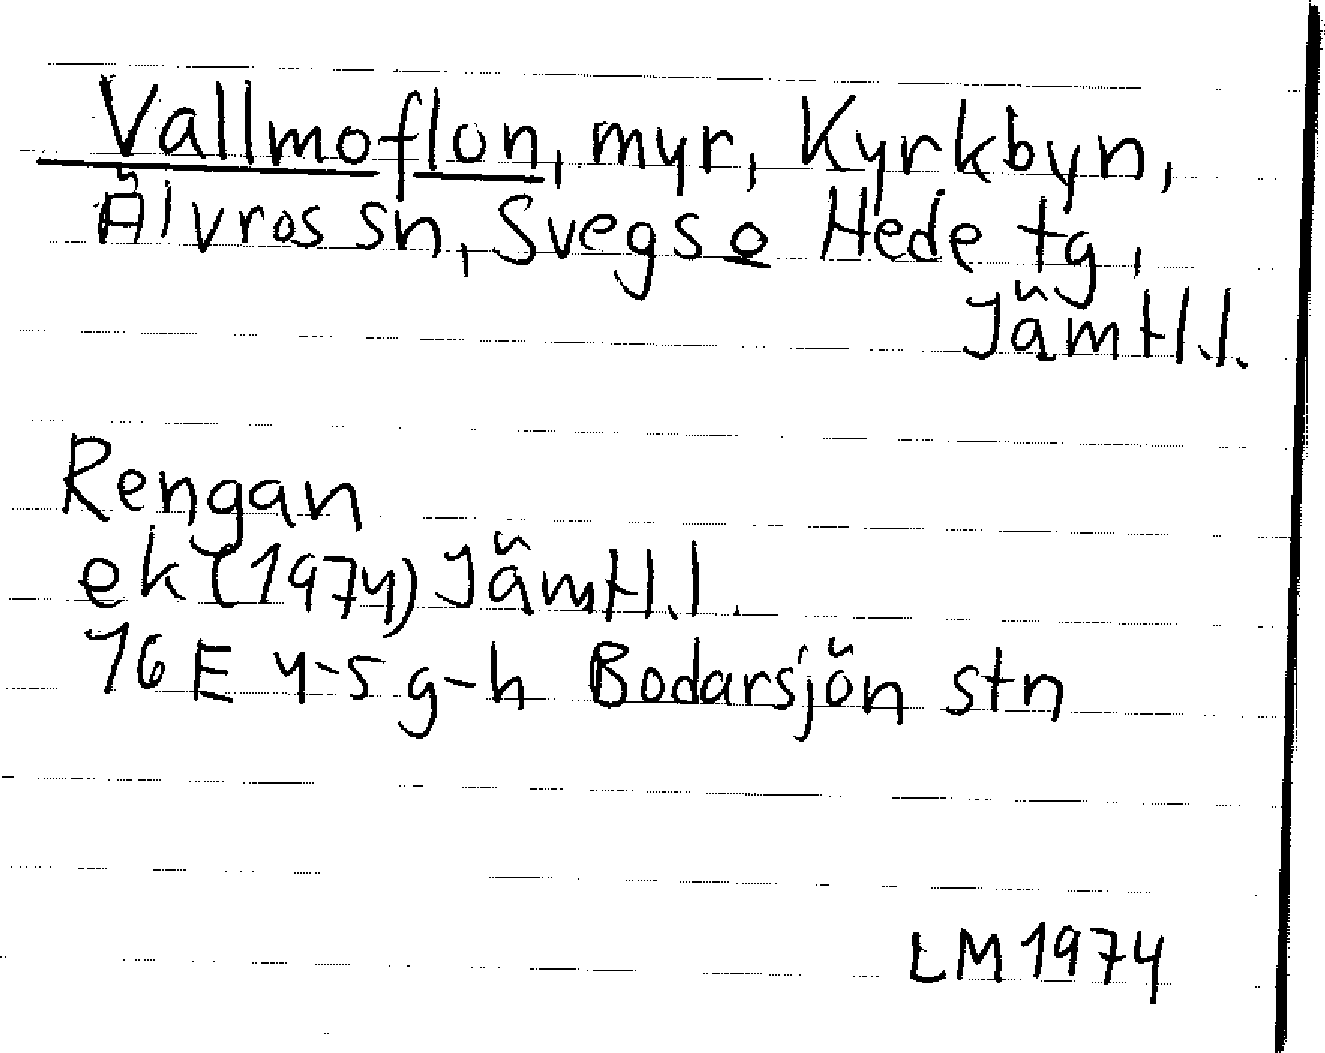 Vallmoflon, myr, Kyrkbyn,
Älvros sn, Svegs o Hede tg,
Jämtl.l.
Rengan
ek (1974) Jämtl.l.
16 E 4-5 g-h Bodarsjön stn
LM 1974